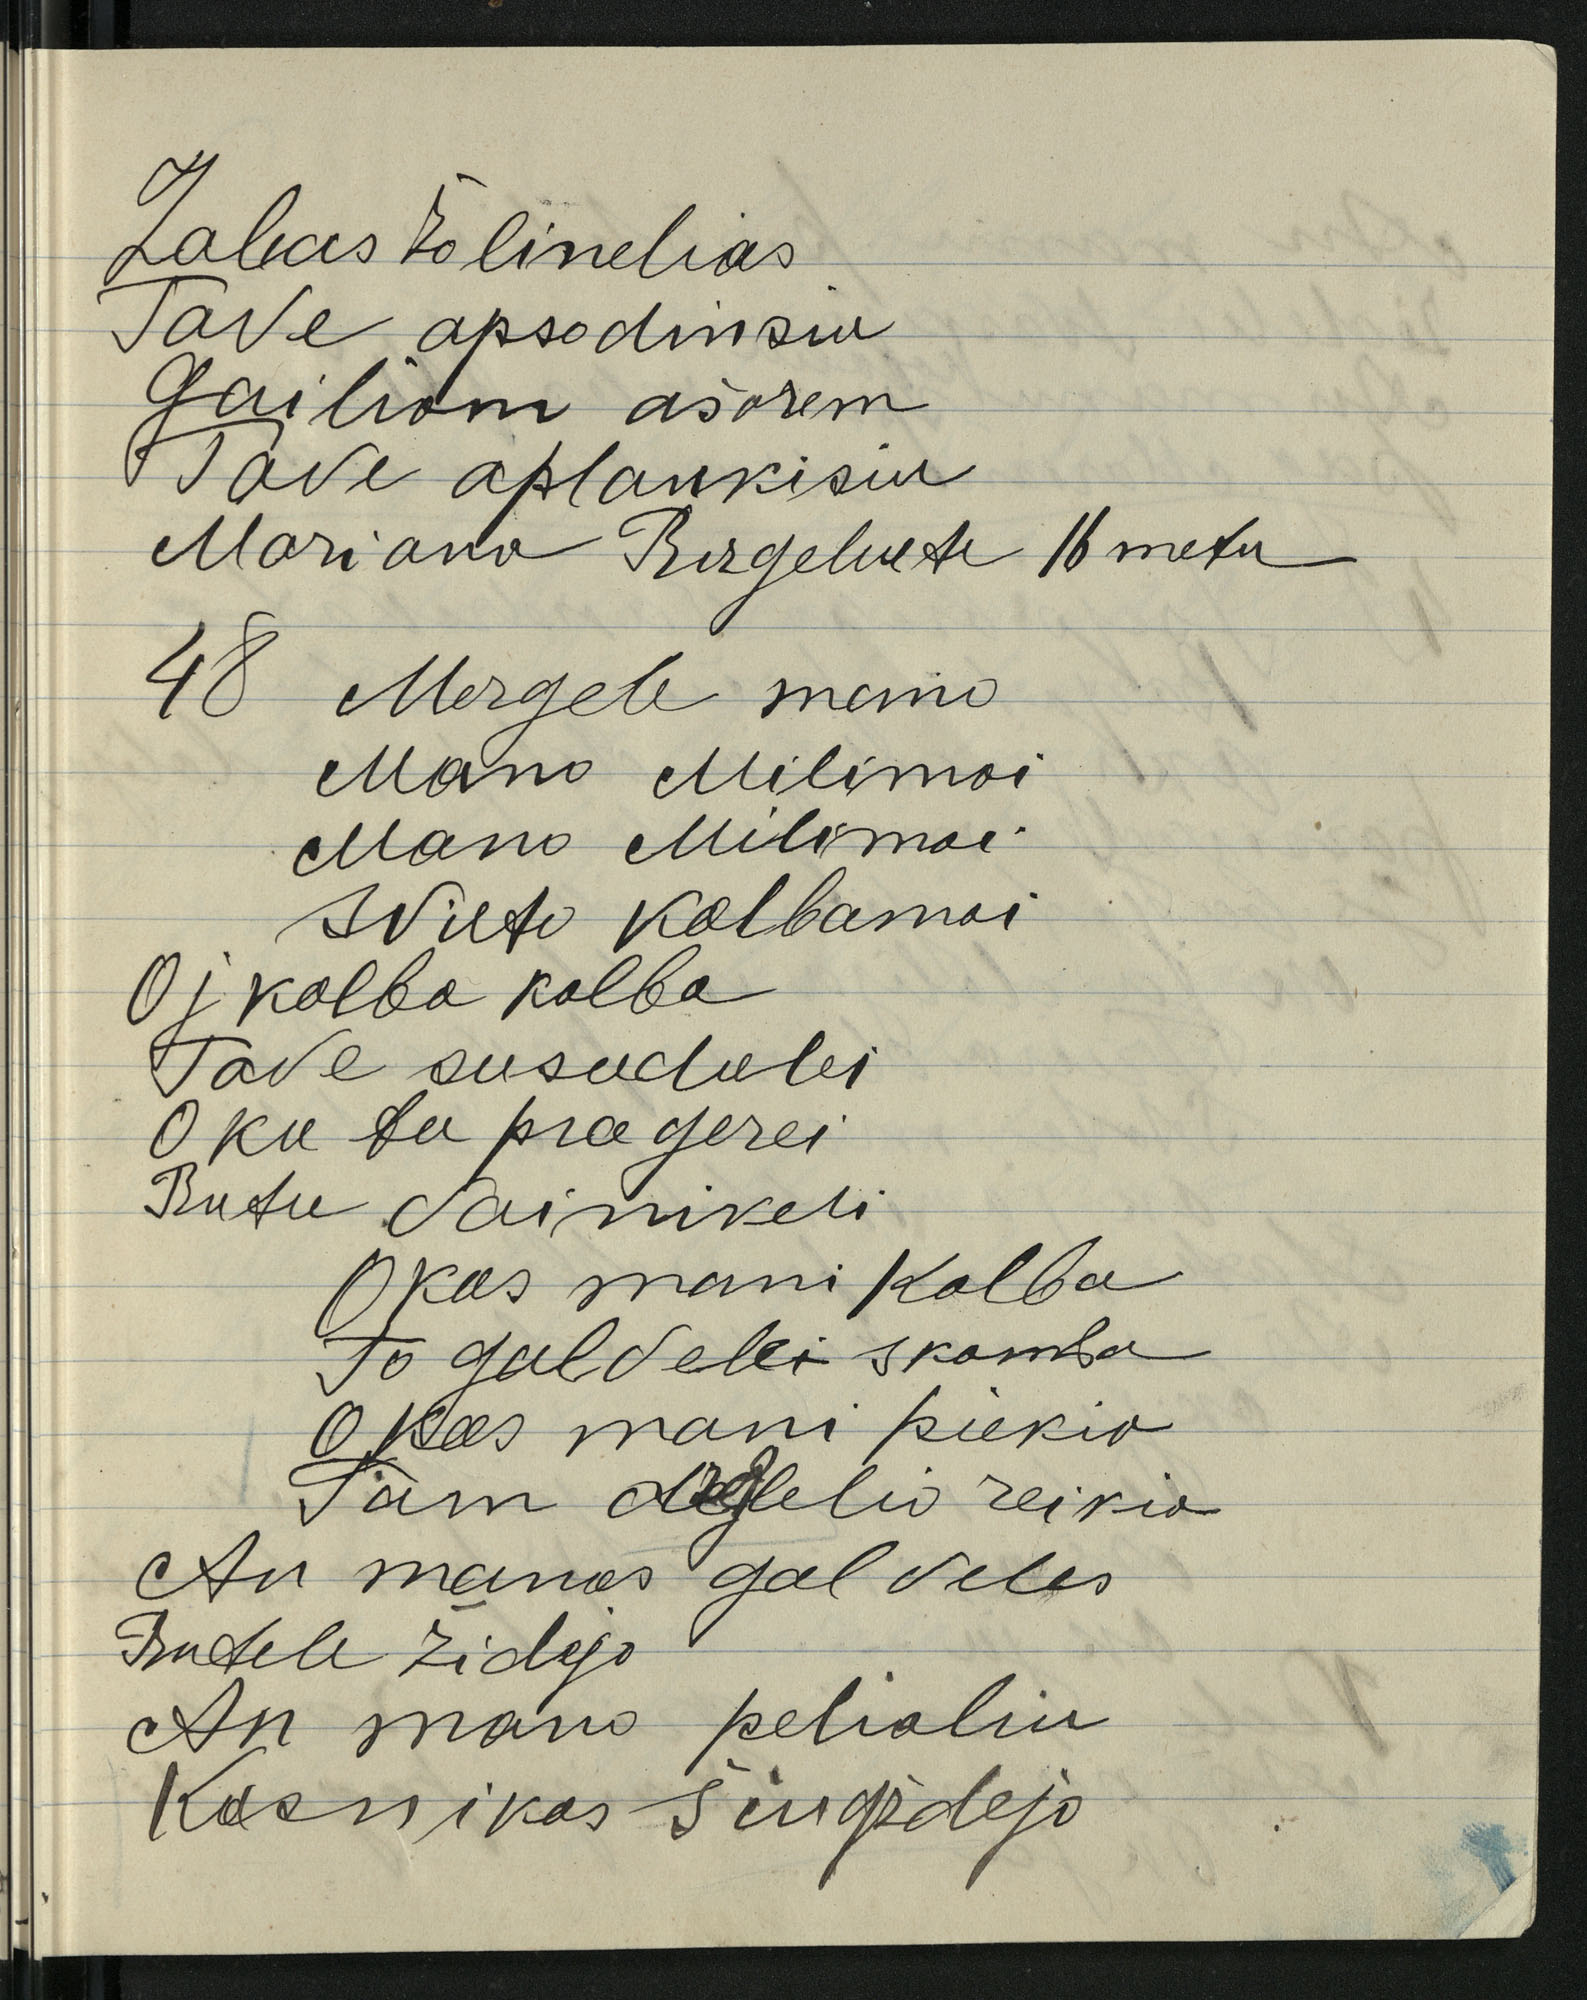 Žalias žolinelias
Tave apsodinsiu
Gailiom ašarem
Tave aplankisiu
Mariana Birgeluete 16 metu
48 Mergele mano
Mano Milimoi
Mano Milimoi
Svieto kalbamoi
Oj kalba kalba
Tave susiedulei
O ku tu pragerei
Rutu vainikeli
O kas mani kalba
To galvelei skamba
O kas mani piekia
Tam dregelio reikia
An manos galveles
Rutele židejo
An mano pelialiu
Kasnikas šiugždejo